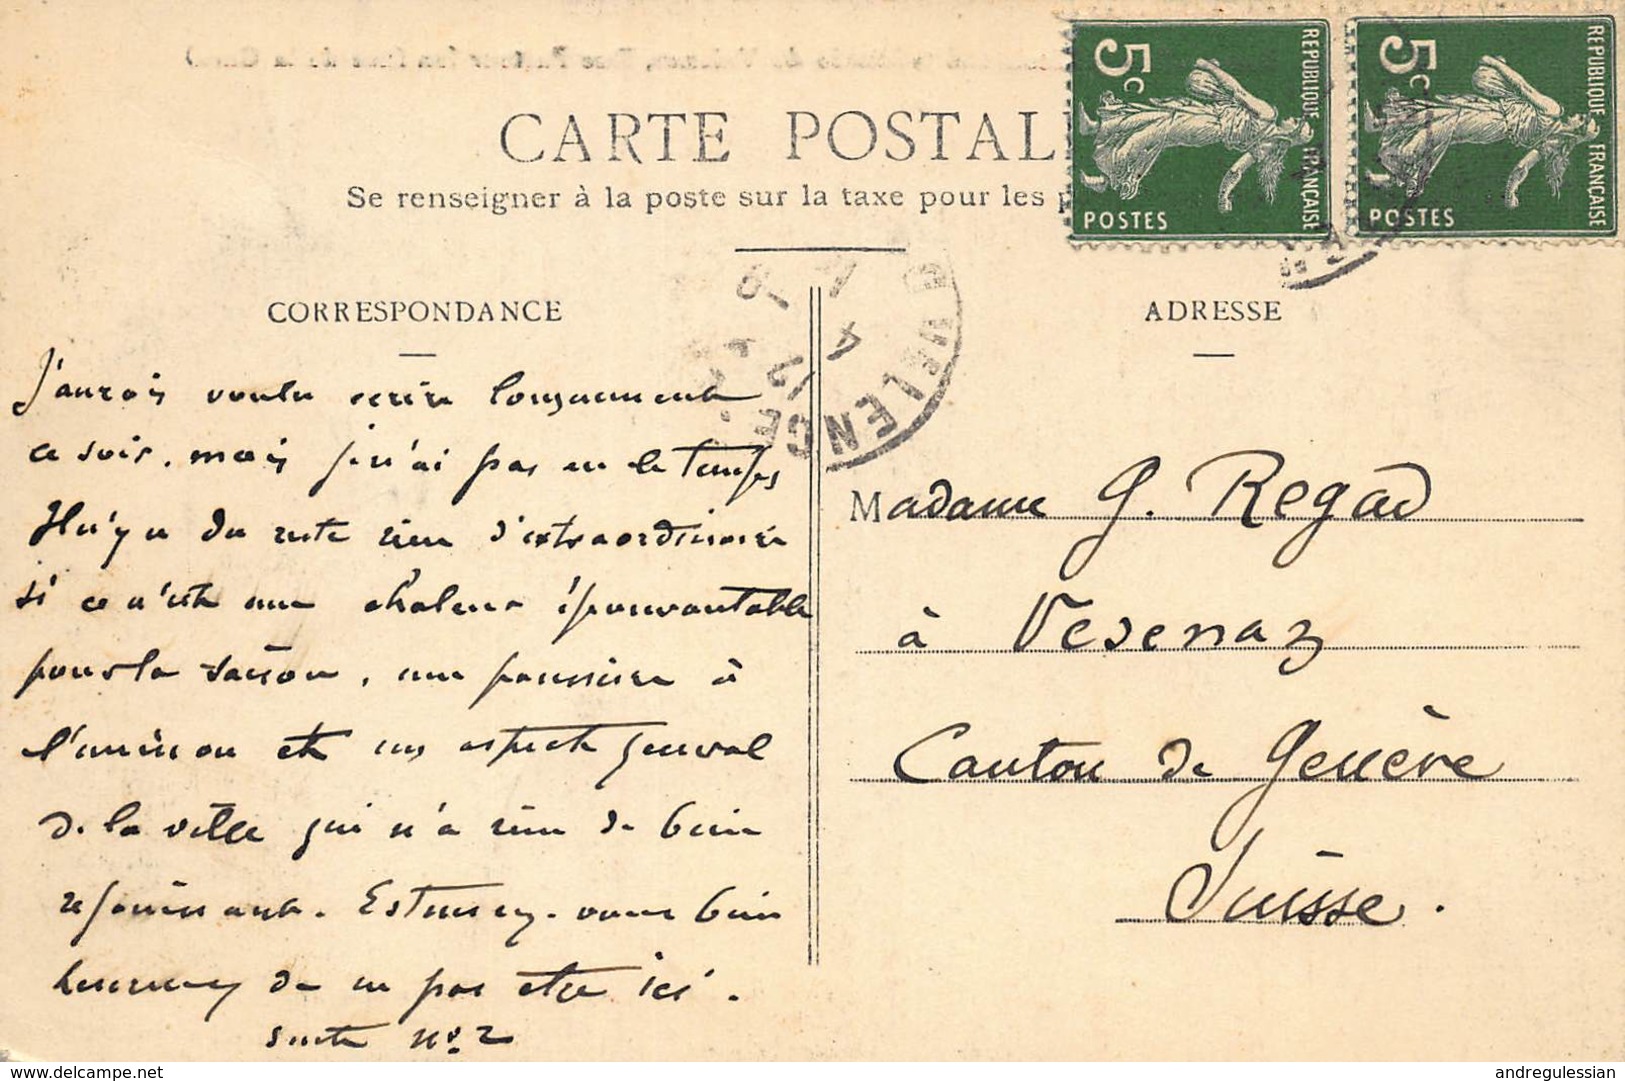 CARTE POSTAL
Se renseigner à la poste sur la taxe pour les p
5c
REPUBLIQUE FRANÇAISE
POSTES
5c
REPUBLIQUE FRANÇAISE
POSTES
VALENCE
CORRESPONDANCE
J'aurais voulu écrire longuement
ce soir, mais je n'ai pas eu le temps
Il n'y a du reste rien d'extraordinaire
si ce n'est une chaleur épouvantable
pour la saison, une poussière à
l'unisson et un aspect general
de la ville qui n'a rien de bien
rejouissant. Estimez-vous bien
heureux de ne pas etre ici.
Suite No. 2
ADRESSE
Madame G. Regad
à Vesenaz
Canton de Genève
Suisse.
delcampe.net
andregulessian